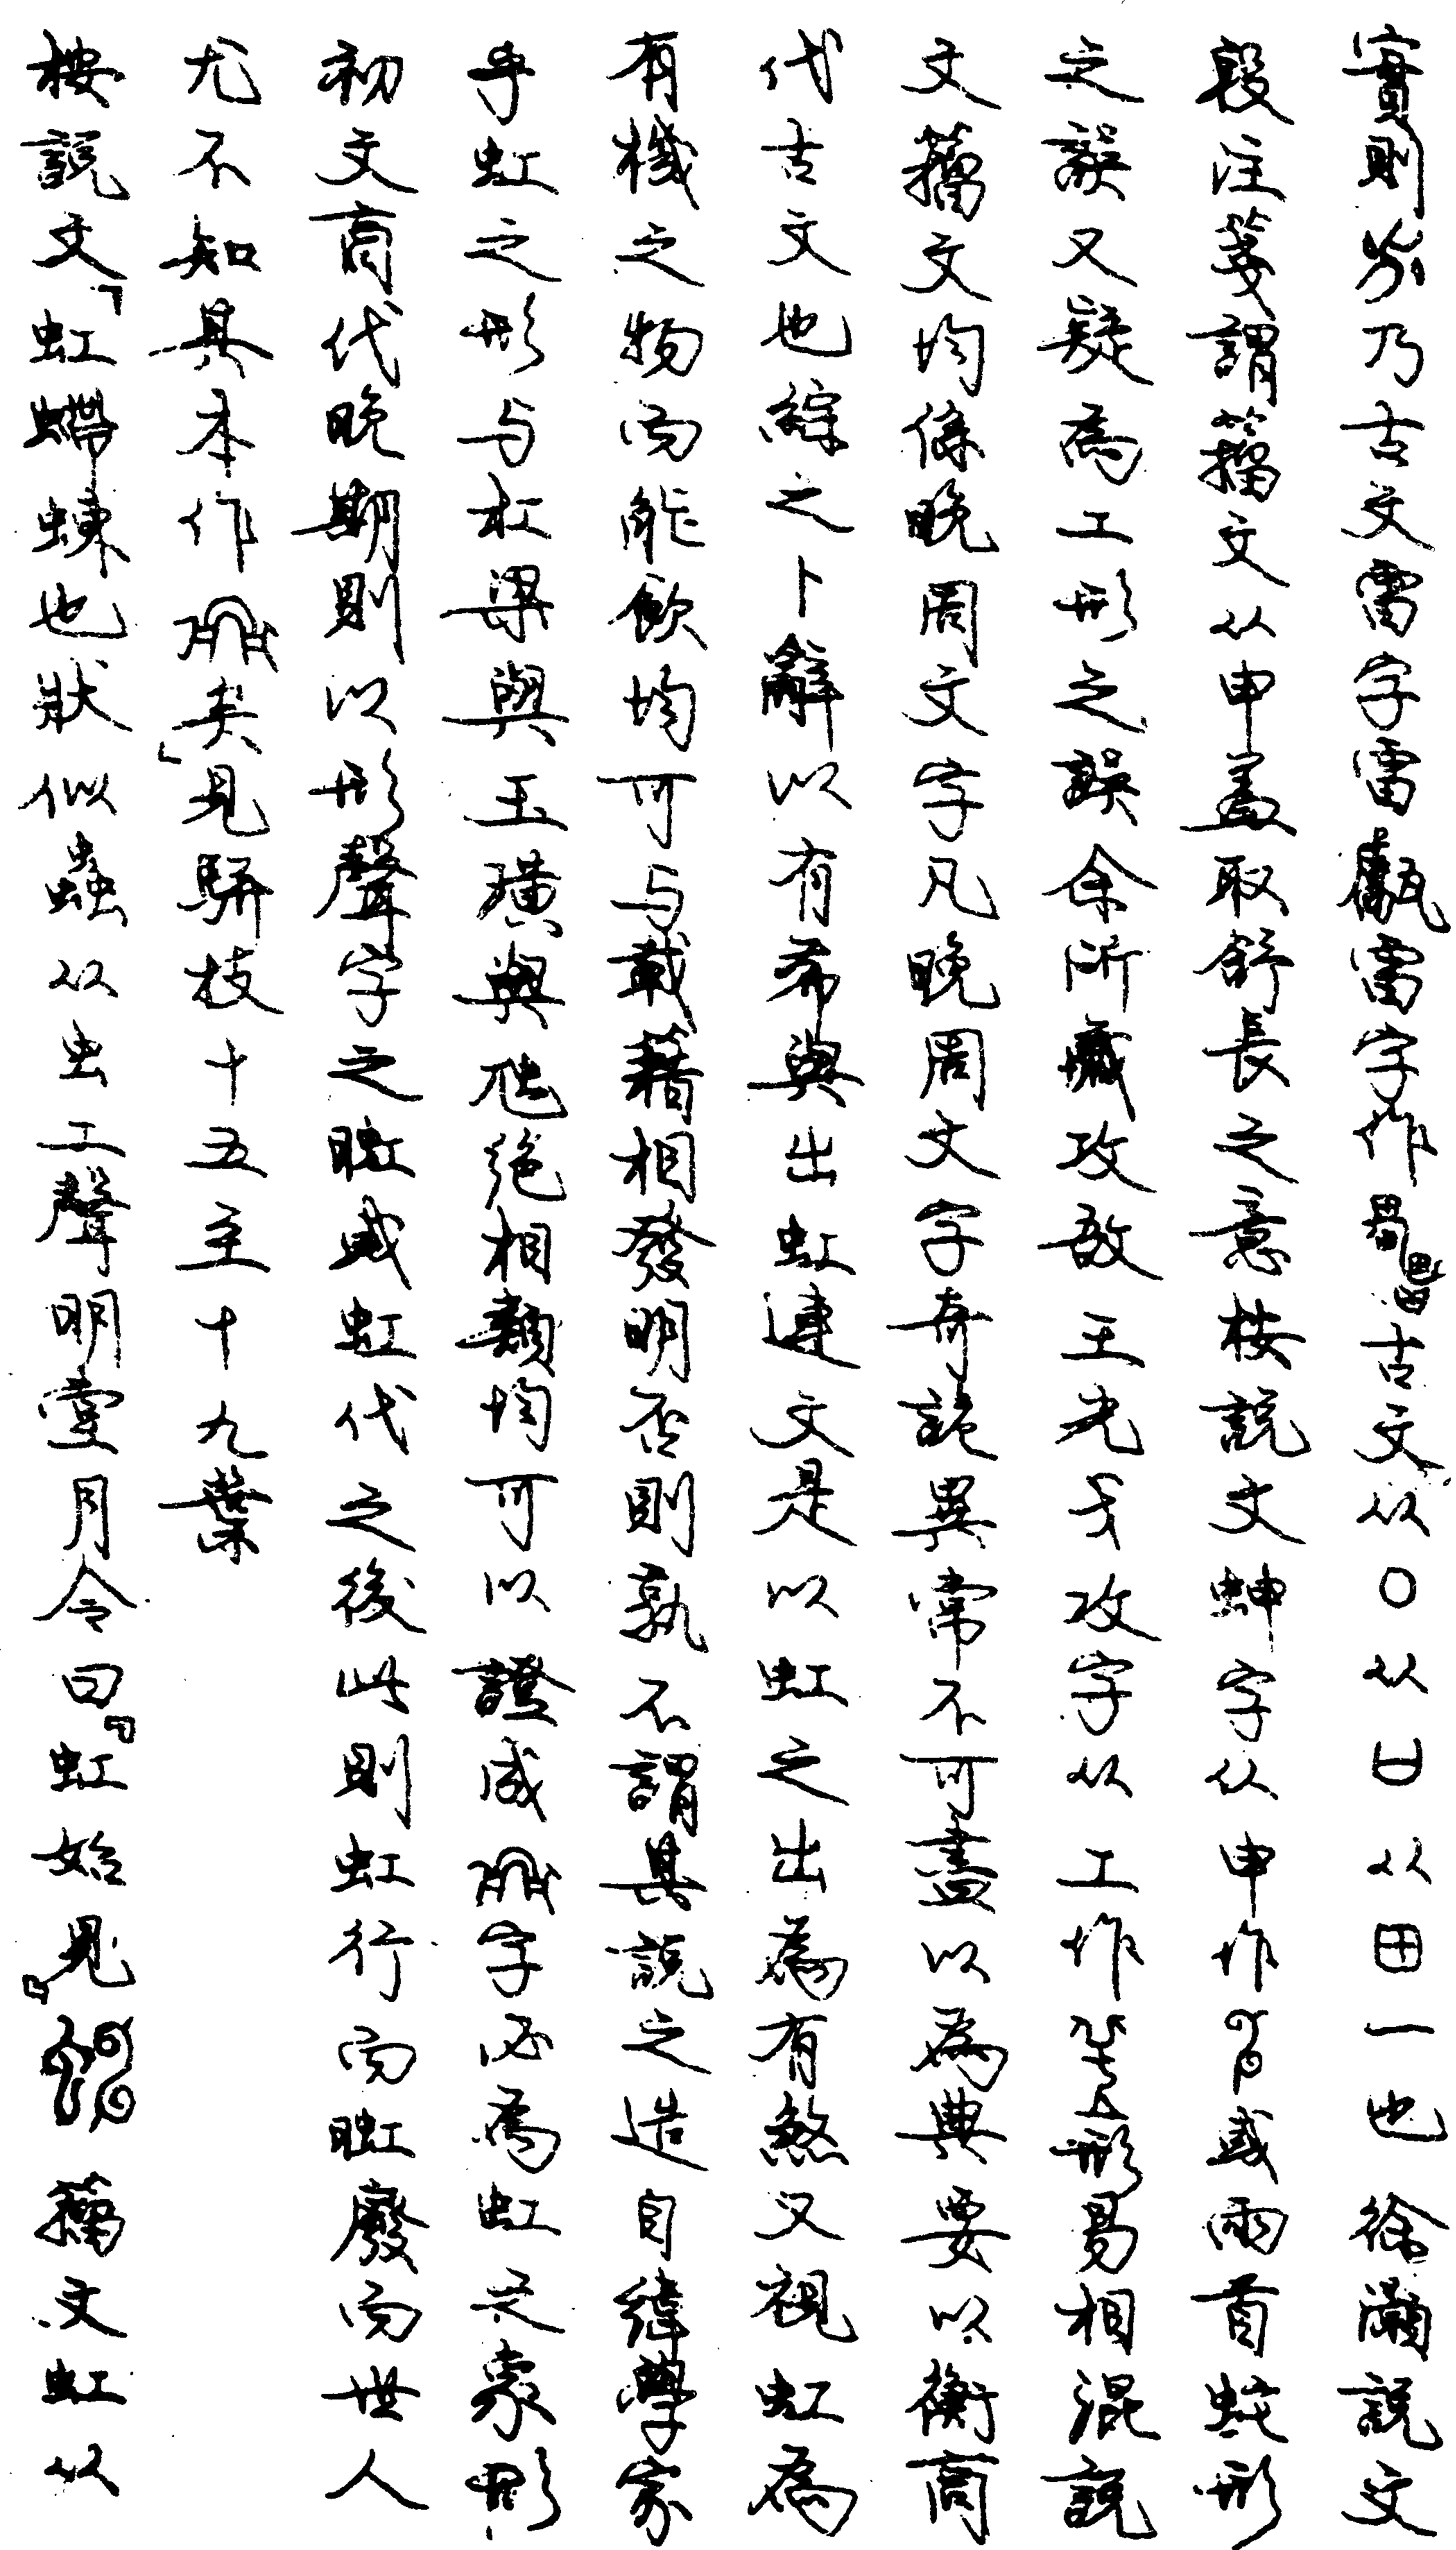 實則乃古文雷字雷甗雷字作古文从〇从口从田一也徐灝說文
段注箋謂籀文从申蓋取舒長之意按說文蚺字从申作或兩首蛇形
之誤又疑為工形之誤余所藏攻敔王光戈攻字从工作形易相混說
文籀文均係晚周文字凡晚周文字奇詭異常不可盡以為典要以衡商
代古文也綜之卜辭以有希與出虹連文是以虹之出為有煞又視虹為
有機之物而能飲均可与載藉相發明否則孰不謂其說之造自緯學家
乎虹之形与杠梁與玉璜與虺絕相類均可以證成字必為虹之象形
初文商代晚期則以形聲字之䖟或虹代之後此則虹行而䖟廢而世人
尤不知其本作矣」見駢枝十五至十九葉
按說文「虹螮蝀也狀似蟲从虫工聲明堂月令曰『虹始見』籀文虹从